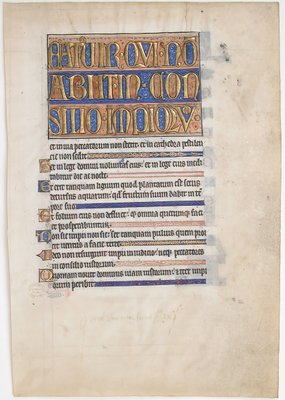 BEATUS VIR QUI NO
ABIIT IN CON
SILIO IMPIORU
et in via peccatorum non stetit: et in cathedra pestilen
tie non sedit
Sed in lege domini voluntas eius: et in lege eius medi
tabitur die ac nocte
Et erit tanquam lignum quod plantatum est secus
decursus aquarum: quod fructum suum dabit in te
pore suo
Et folium eius non defluet: et omnia quecumque faci
et prosperabuntur
Non sic impii non sic: set tanquam pulvis quem proi
cit ventus a facie terre
Ideo non resurgunt impii in iudicio: neque peccatores
in consilio iustorum
Quoniam novit dominus viam iustorum: et iter impi
orum peribit